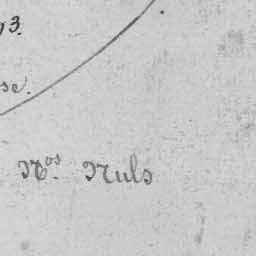 3.
se.
Nos. Nuls